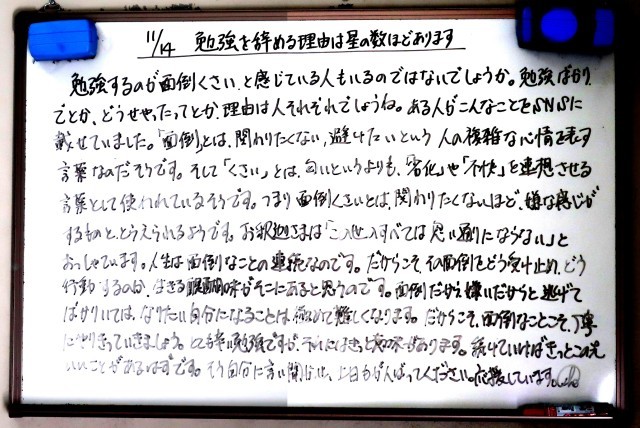 11/14 勉強を辞める理由は星の数ほどあります
勉強するのが面倒くさい、と感じている人もいるのではないでしょうか。勉強ばかり
でとか、どうせやったってとか、理由は人それぞれでしょうね。ある人がこんなことをSNSに
載せていました。「面倒」とは、関わりたくない、避けたいという人の複雑な心情を表す
言葉なのだそうです。そして「くさい」とは、匂いというよりも、"劣化"や"不快"を連想させる
言葉として使われているそうです。つまり面倒くさいとは、関わりたくないほど、嫌な感じが
するものと、とらえられるようです。お釈迦さまは「この世すべては思い通りにならない」と
おっしゃています。人生は面倒なことの連続なのです。だからこそ、その面倒をどう受け止め、どう
行動するのか、生きる醍醐味がそこにあると思うのです。面倒だから、嫌いだからと逃げて
ばかりいては、なりたい自分になることは極めて難しくなります。だからこそ、面倒なことこそ、丁寧
にやりきっていきましょう。勉強ですが、それにはきっと意味があります。続けていけばきっとこの先
いいことがあるはずです。そう自分に言い聞かせ、上日もがんばってください。応援しています。